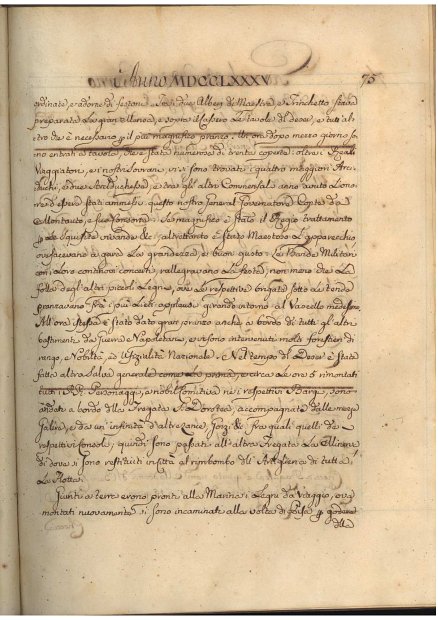 Anno MDCCLXXXV 75
ordinate, e adorne di festone. Fra i due Alberi di Maestra, e Trinchetto stava
preparata La gran Mensa, e sopra il Cassero Le tavole di e tutt'al
tro che è necessario p il più magnifico pranzo. Un'ora dopo mezzo giorno so
no entrati a tavola, che è stata numerosa di trenta coperte: oltre i Reali
Viaggiatori, e i nostri Sovrani, vi si sono trovati i quattro maggiori Arci
duchi, e due Arciduchesse, e tra gli altri Commensali anno avuto L'ono
re d'essere stati ammessi questo nostro General Governatore Conte de
Montauto, e sua Consorte. Magnifico è stato il Regio trattamento
p Le squisite vivande &c: altrettanto è stato Maestoso L'apparecchio,
ove facevano a gara La grandezza, e buon gusto: Le Bande Militari
con i Loro continovi concerti, rallegravano La festa, non meno che La
folla degl'altri piccoli Legni, ove Le respettive brigate sotto Le tende
pranzavano fra i più Lieti applausi girando intorno al Vascello medesimo
All'ora stessa è stato dato gran pranzo anche a bordo di tutti gli altri
bastimenti da guerra Napoletani, e vi sono intervenuti molti forestieri di
rango, e Nobiltà, ed Ufizialità Nazionale. Nel tempo di è stata
fatta altra Salva generale come alla prima, e circa Le ore 5 rimontati
tutti i RR. Personaggi, e nobil comitiva nei respettivi Bargi, sono
andati a bordo della Fregata S. Dorotea, accompagnata dalle mezze
Galere, e da un'infinità d'altre Lance, fra quali quelle de
respettivi Consoli, quindi sono passati all'altra Fregata La
di dove si sono restituiti in città al rimbombo dell'Artiglieria di tutta
La Flotta.
Giunti a terra erano pronti alla Marina i Legni da viaggio, ove
montati nuovamente si sono incaminati alla volta di Pisa p godere
della